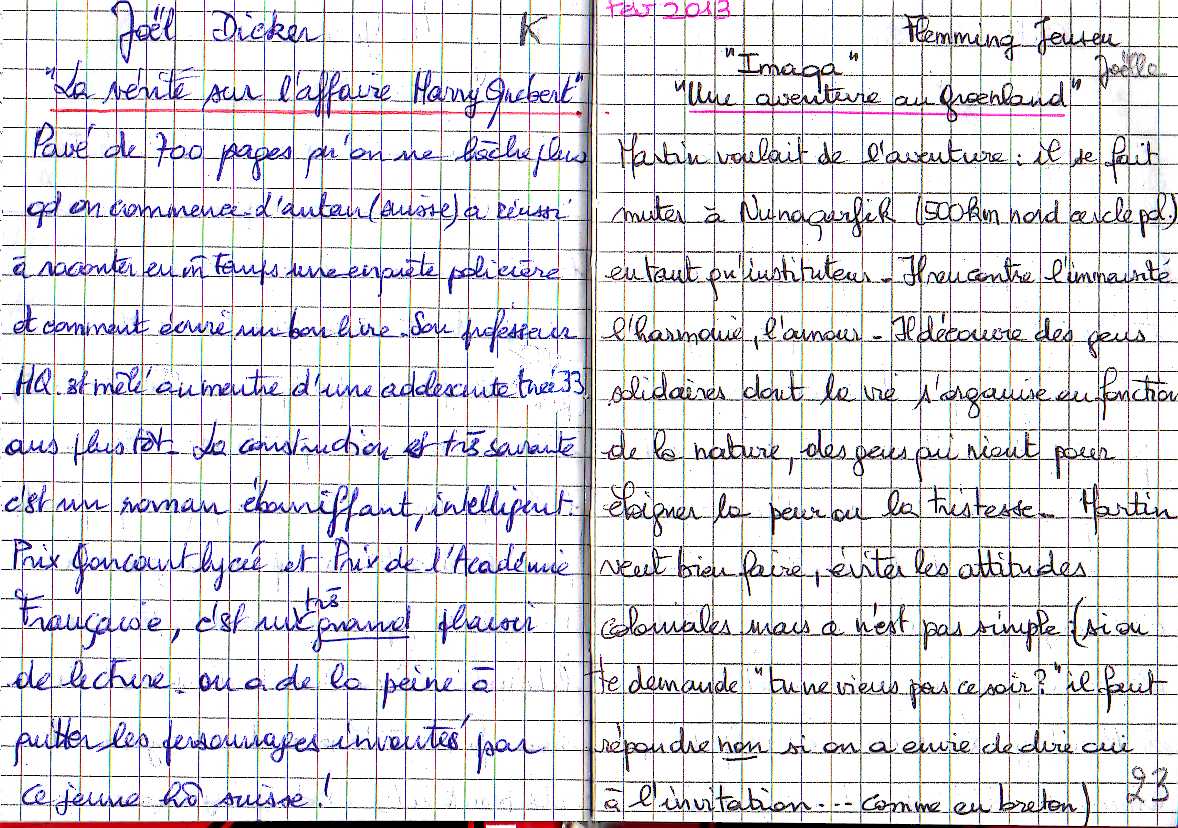 Joël Dicker K
"La vérité sur l'affaire Harry Quebert"
Pavé de 700 pages qu'on ne lâche plus
qd on commence. L'auteur (suisse) a réussi
à raconter en m̄ temps une enquête policière
et comment écrire un bon livre. Son professeur
HQ. est mêlé au meurtre d'une adolescente tuée 33
ans plus tôt. La construction est très savante
c'est un roman ébouriffant, intelligent.
Prix Goncourt lycée et Prix de l'Académie
Française, c'est un très grand plaisir
de lecture. on a de la peine à
quitter les personnages inventés par
ce jeune suisse!
Fev 2013
Flemming Jensen
"Imaqa" Joëlle
"Une aventure au Groenland"
Martin voulait de l'aventure : il se fait
muter à Nunaqarfik (500km nord cercle pol.)
en tant qu'instituteur. Il rencontre l'immensité
l'harmonie, l'amour. Il découvre des gens
solidaires dont la vie s'organise en fonction
de la nature, des gens qui rient pour
éloigner la peur ou la tristesse. Martin
veut bien faire, éviter les attitudes
coloniales mais ce n'est pas simple (si on
te demande "tu ne viens pas ce soir?" il faut
répondre non si on a envie de dire oui
à l'invitation.... comme en breton)
23